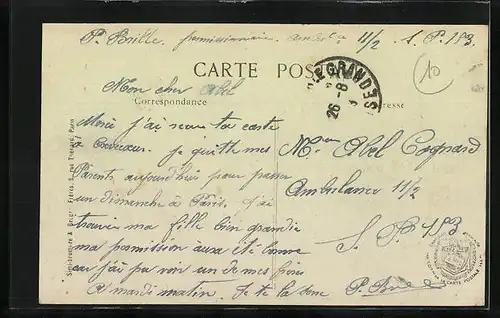 P. Brille permissionnaire 11/2 S. P. 183
CARTE POS
GRANDES
26-8
10
Mon cher Abel
Correspondance
resse
Merci j'ai reçu ta carte
à je quitte mes
Parents aujourd'hui pour passer
un dimanche à Paris. j'ai
trouvé ma fille bien grandie
ma permission aura été bonne
car j'ai pu voir un de mes frères
A mardi matin. Je te la serre
P.
Mr Abel Cognard
Ambulance 11/2
S. P. 183
Frères, Paris
CARTE POSTALE